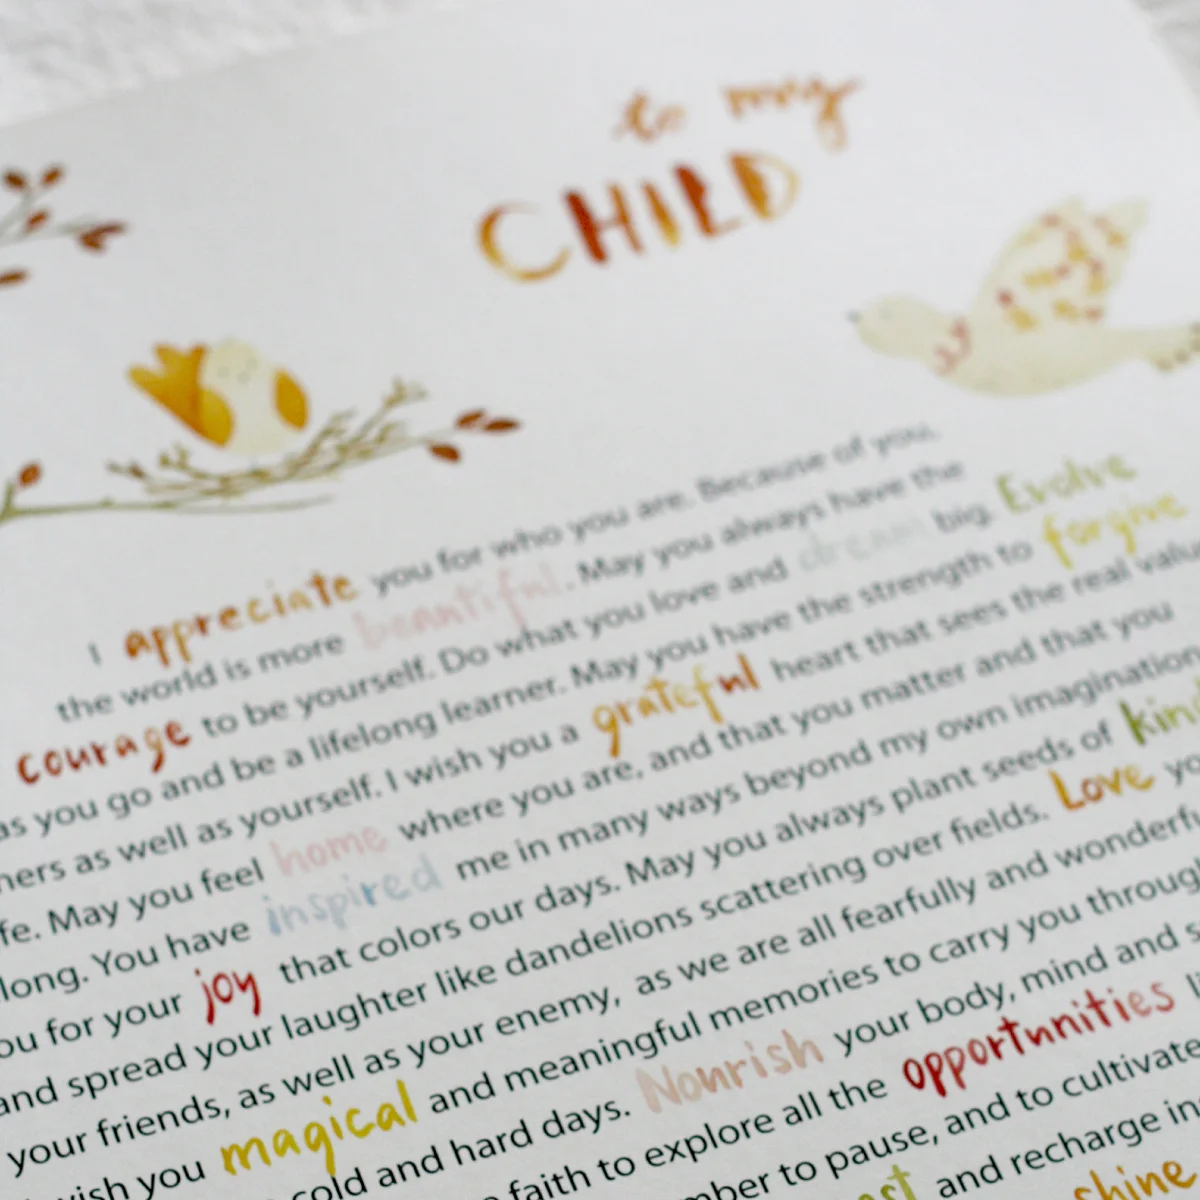 to my
CHILD
I appreciate you for who you are. Because of you,
the world is more beautiful. May you always have the
courage to be yourself. Do what you love and dream big. Evolve
as you go and be a lifelong learner. May you have the strength to forgive
hers as well as yourself. I wish you a grateful heart that sees the real valu
fe. May you feel home where you are, and that you matter and that you
long. You have inspired me in many ways beyond my own imagination
ou for your joy that colors our days. May you always plant seeds of kind
and spread your laughter like dandelions scattering over fields. Love yo
your friends, as well as your enemy, as we are all fearfully and wonderfu
wish you magical and meaningful memories to carry you through
cold and hard days. Nourish your body, mind and s
faith to explore all the opportunities
mber to pause, and to cultivate
est and recharge in
shine